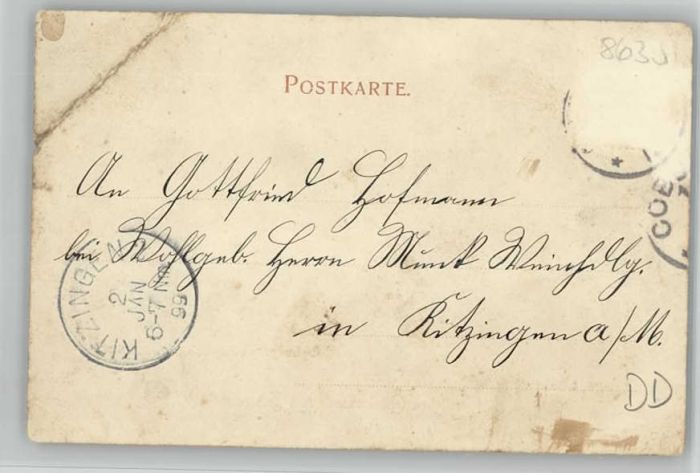 863
POSTKARTE.
An Gottfried Hofmann
bei Wohlgeb. Herrn Munk Weinhdlg.
in Kitzingen a/M.
KITZINGEN
2
JAN
6-7 Nm
99
COB
DD